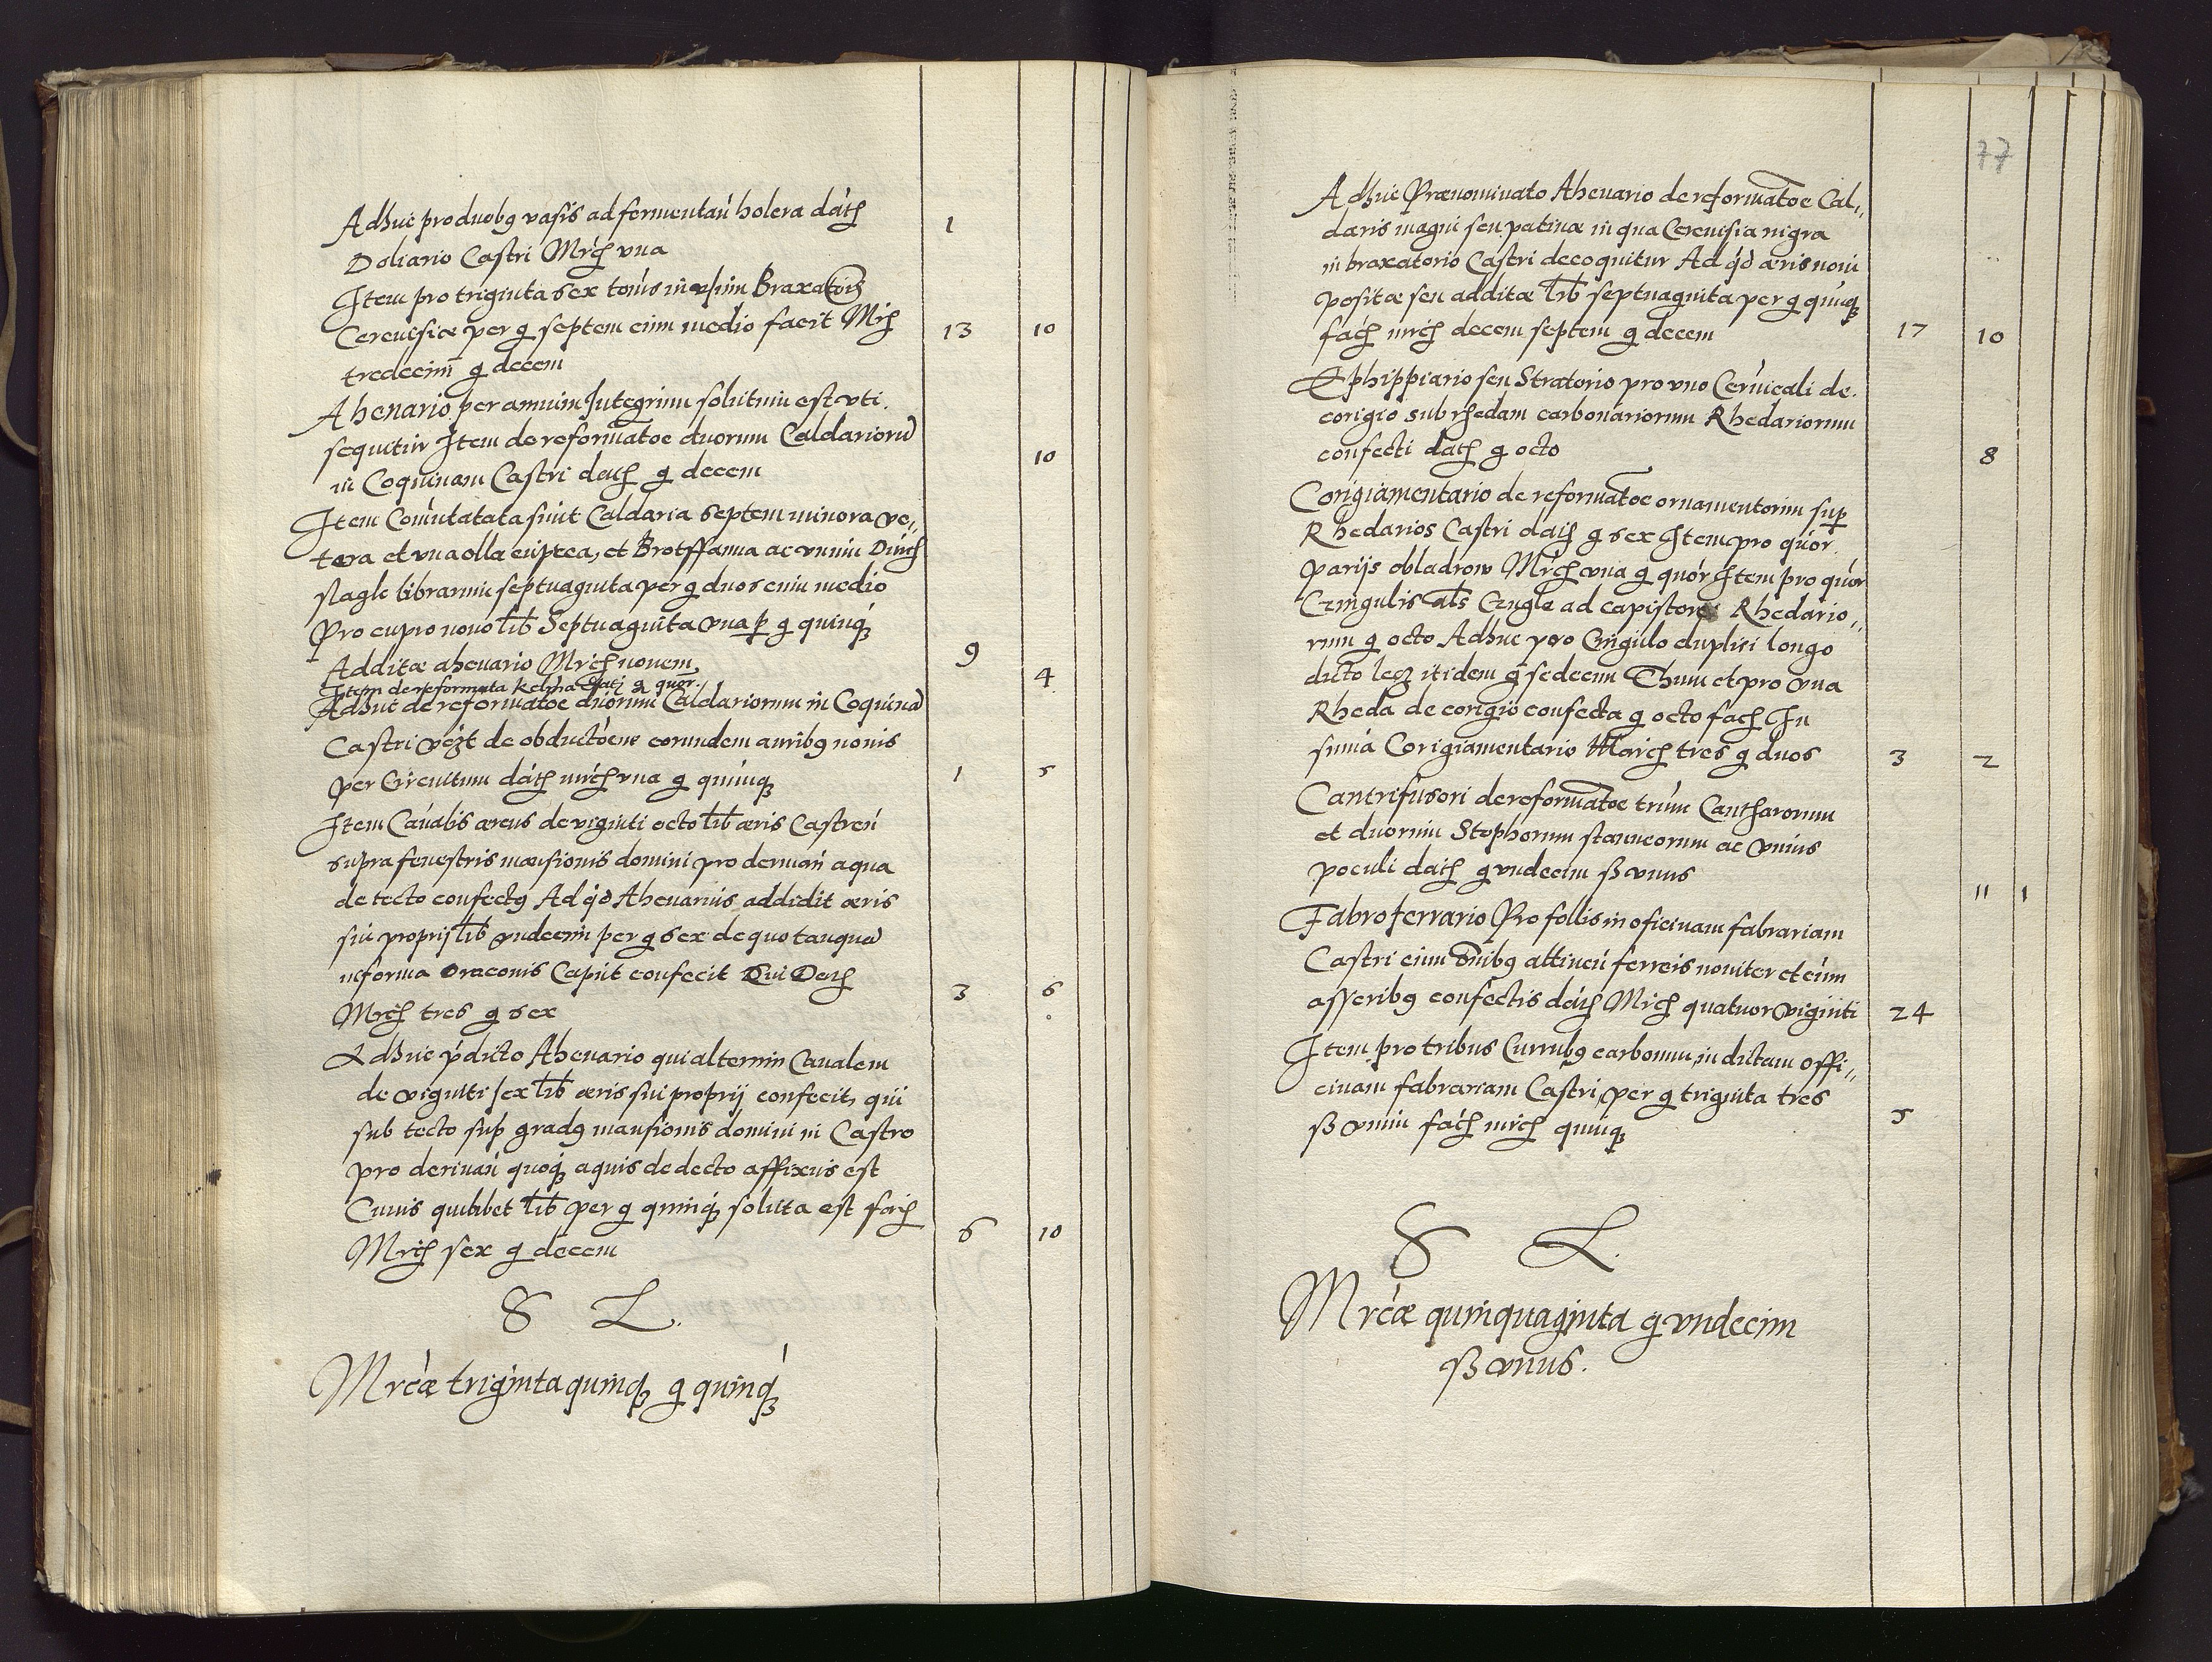 Adhuc pro duobꝫ vasis ad fermentań holera datɧ
Doliario Castri Mrɧ vna
1
Item pro triginta sex tonis in vsum Braxatoris
Cerevisiæ per g septem cum medio facit Mrɧ
tredecim g decem
13 10
Ahenario per annum Integrum solutum est vti
sequitur Item de reformatoe duorum Caldarioru
in Coquinam Castri datɧ g decem
10
Item Comutatata sunt Caldaria septem minora ve„
tera et vna olla cuprea, et Brotffanna ac vnum Durch
slagk librarum septuaginta per g duos cum medio
Pro cupro novo lib Septuaginta vna p g quinqꝫ
Additæ ahenario Mrcɧ novem
9
Item de reformata datɧ g quor.
4
Adhuc de reformatoe duorum Caldariorum in Coquina
Castri de obductoene eorundem auribꝫ nouis
per Circuitum datɧ mrcɧ vna g quinqꝫ
1 5
Item Canalis æreus de viginti octo lib æris Castreń
supra fenestris mansionis domini pro deriuań aqua
de tecto confectꝫ Ad qd Ahenarius addidit æris
sui proprij lib vndecim per g sex de quo tanqua
in forma Draconis Caput confecit Sui Datɧ
Mrcɧ tres g sex
3 6
Adhuc pdicto Ahenario qui alterum Canalem
de viginti sex lib æris sui proprij confecit, qui
sub tecto sup gradꝫ mansionis domini in Castro
pro deriuań quoqꝫ aquis de decto affixus est
Cuius quilibet lib per g quinqꝫ soluta est facɧ
Mrcɧ sex g decem
6 10
S L.
Mrcæ triginta quinqꝫ g quinqꝫ
77
Adhuc Prænominato Ahenario de reformatoe Cal„
daris magni seu patinæ in qua Cerevisia nigra
in braxatorio Castri decoquitur Ad qd æris noui
positæ seu additæ lib septuaginta per g quinqꝫ
facɧ mrcɧ decem septem g decem
17 10
Ephippiario seu Stratorio pro vno Ceruicali de
corigio sub rhedam carbonariorum Rhedariorum
confecti datɧ g octo
8
Corigiamentario de reformatoe ornamentorum sup
Rhedarios Castri datɧ g sex Item pro quor
parijs obladrow Mrcɧ vna g quor Item pro quor
Czingulis als Czugle ad capistores Rhedario„
rum g octo Adhuc pro Cingulo duplici longo
dicto lecz itidem g sedecim Thum et pro vna
Rheda de corigio confecta g octo facɧ In
suma Corigiamentario Marcɧ tres g duos
3 2
Cantrifusori de reformatoe trium Cantharorum
et duorum Stophorum stanneorum ac vnius
poculi datɧ g vndecim ß vnus
11 1
Fabro ferrario Pro follis in oficinam fabrariam
Castri cum omibꝫ attineń ferreis noviter et cum
asseribꝫ confectis datɧ Mrcɧ quatuor viginti
24
Item pro tribus Currubꝫ carbonum in dictam offi„
cinam fabrariam Castri, per g triginta tres
ß vnum facɧ mrcɧ quinqꝫ
5
S L.
Mrcæ quinquaginta g vndecim
ß vnus.